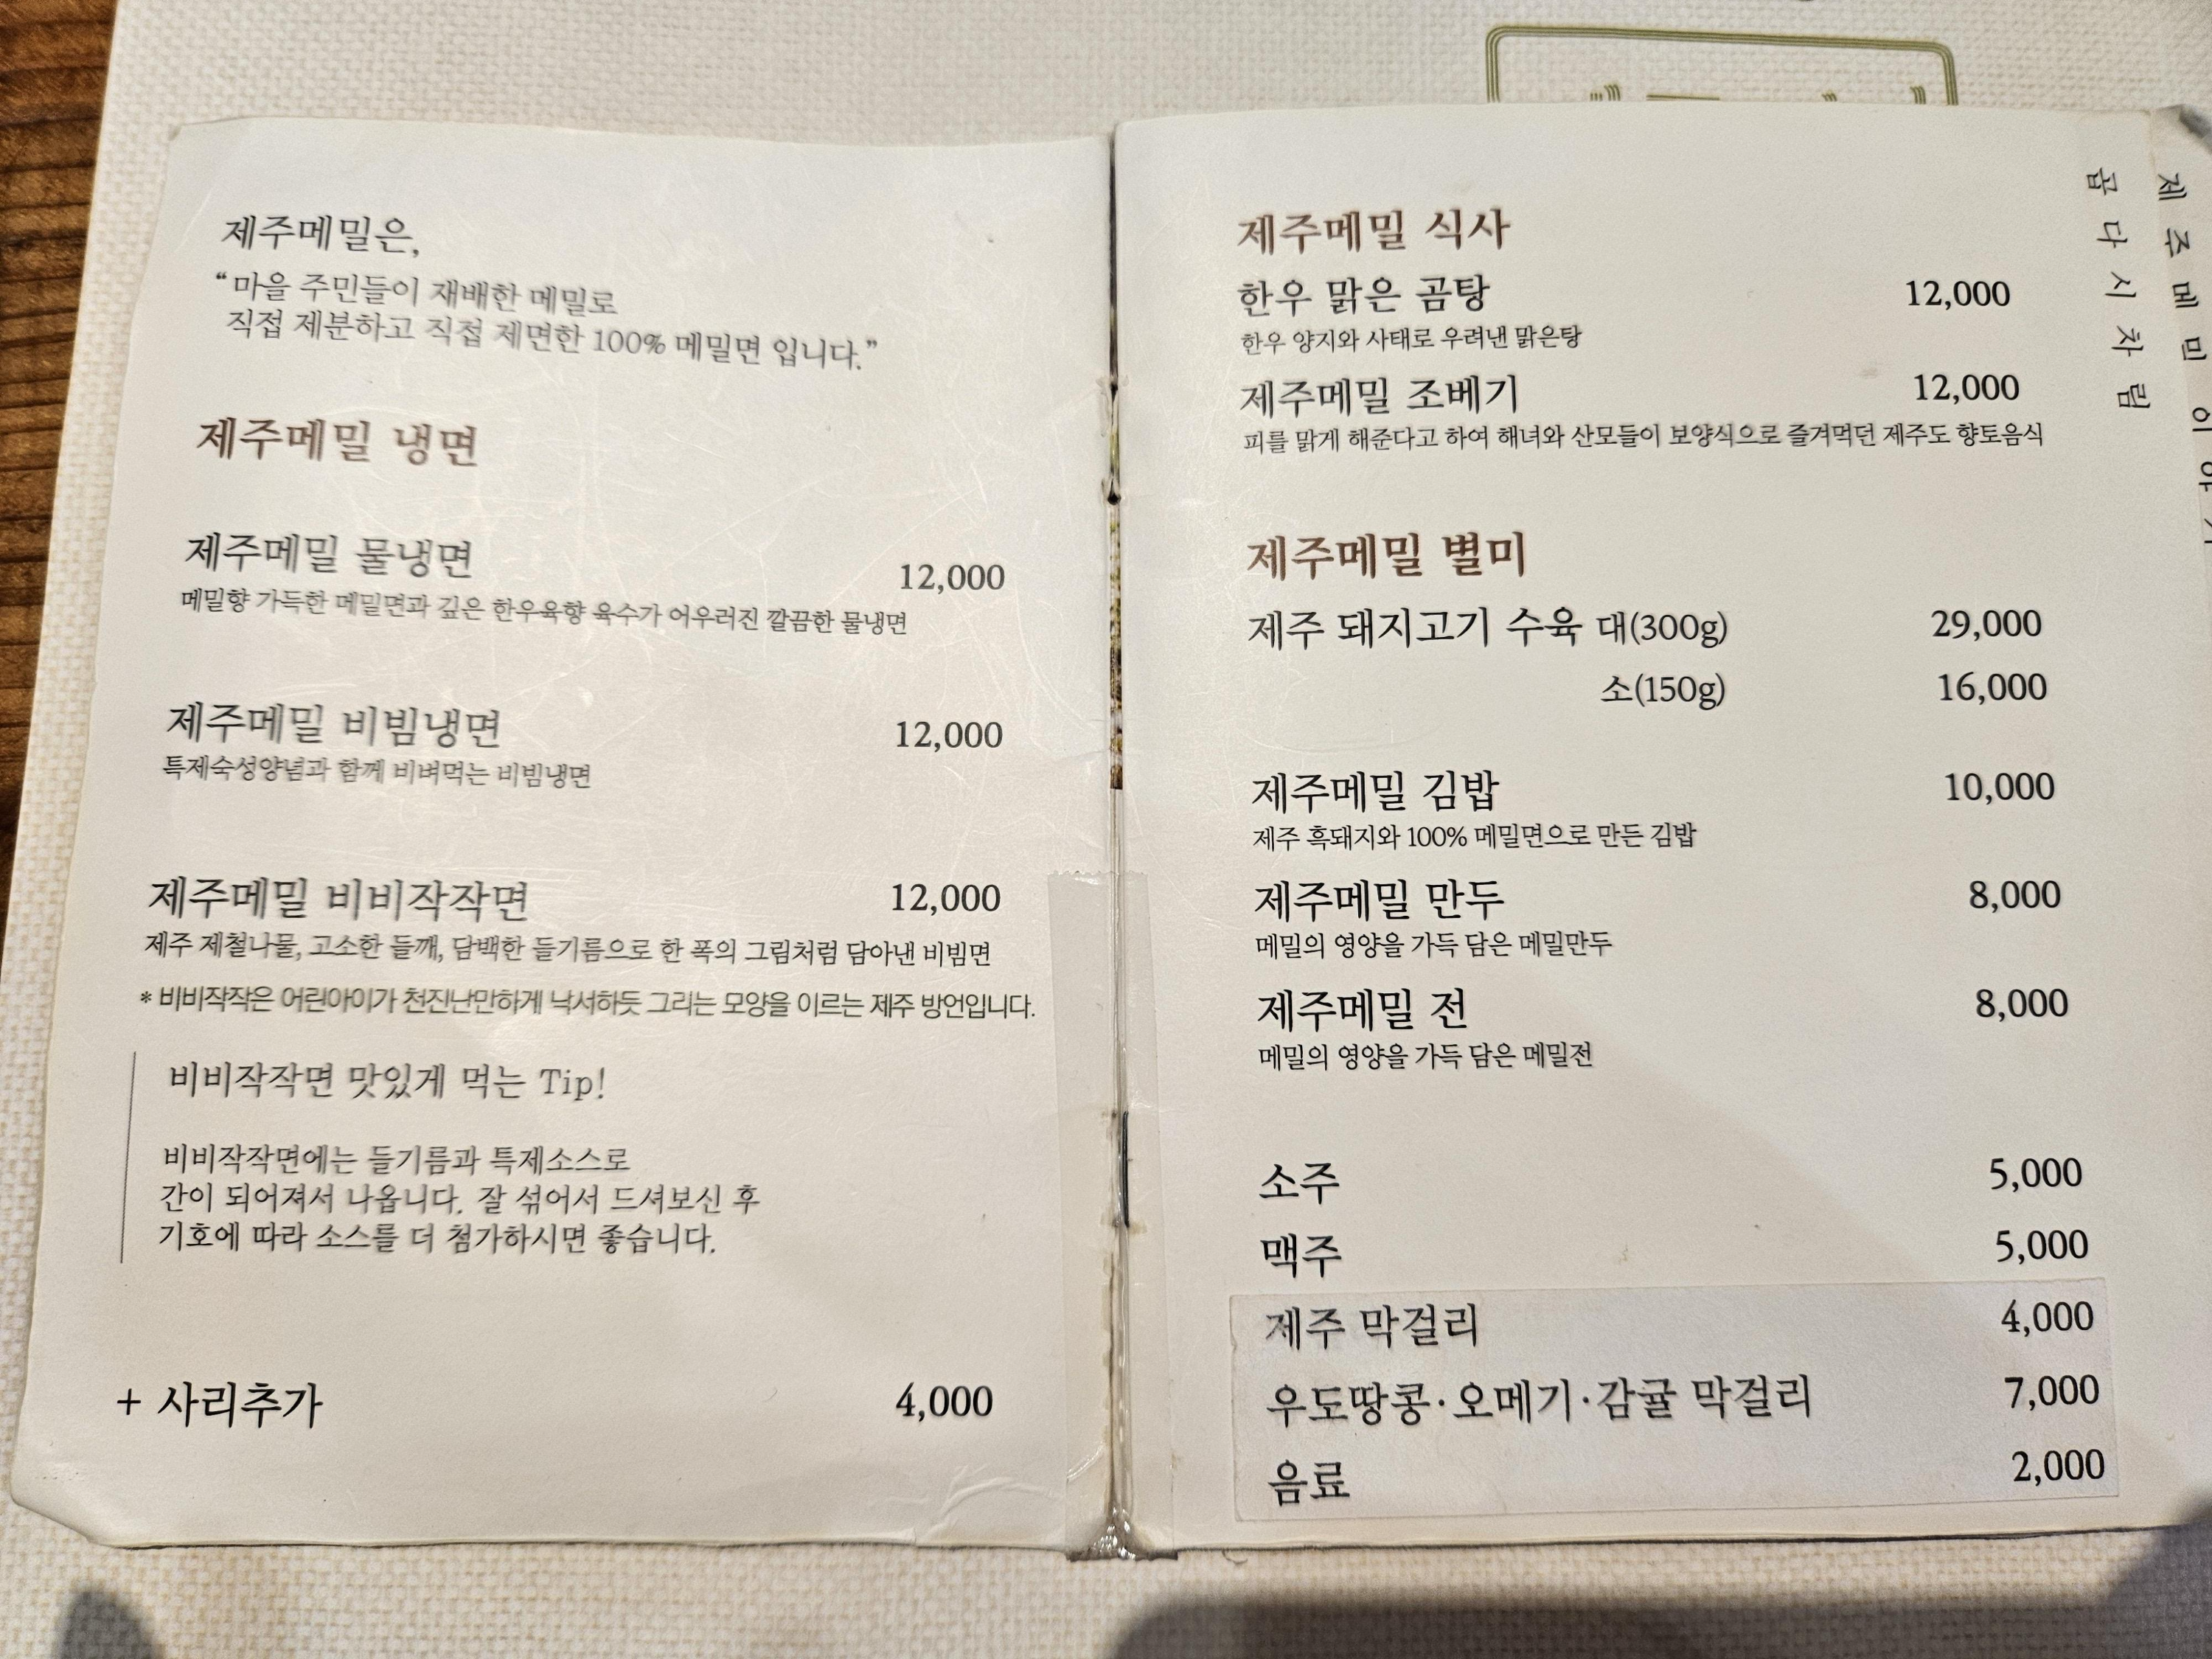 제주메밀은,
“마을 주민들이 재배한 메밀로
직접 제분하고 직접 제면한 100% 메밀면 입니다.”
제주메밀 냉면
제주메밀 물냉면 12,000
메밀향 가득한 메밀면과 깊은 한우육향 육수가 어우러진 깔끔한 물냉면
제주메밀 비빔냉면 12,000
특제숙성양념과 함께 비벼먹는 비빔냉면
제주메밀 비비작작면 12,000
제주 제철나물, 고소한 들깨, 담백한 들기름으로 한 폭의 그림처럼 담아낸 비빔면
* 비비작작은 어린아이가 천진난만하게 낙서하듯 그리는 모양을 이르는 제주 방언입니다.
비비작작면 맛있게 먹는 Tip!
비비작작면에는 들기름과 특제소스로
간이 되어져서 나옵니다. 잘 섞어서 드셔보신 후
기호에 따라 소스를 더 첨가하시면 좋습니다.
+ 사리추가 4,000
제주메밀 식사
한우 맑은 곰탕 12,000
한우 양지와 사태로 우려낸 맑은탕
제주메밀 조베기 12,000
피를 맑게 해준다고 하여 해녀와 산모들이 보양식으로 즐겨먹던 제주도 향토음식
제주메밀 별미
제주 돼지고기 수육 대(300g) 29,000
소(150g) 16,000
제주메밀 김밥 10,000
제주 흑돼지와 100% 메밀면으로 만든 김밥
제주메밀 만두 8,000
메밀의 영양을 가득 담은 메밀만두
제주메밀 전 8,000
메밀의 영양을 가득 담은 메밀전
소주 5,000
맥주 5,000
제주 막걸리 4,000
우도땅콩·오메기·감귤 막걸리 7,000
음료 2,000
제주메밀
차림